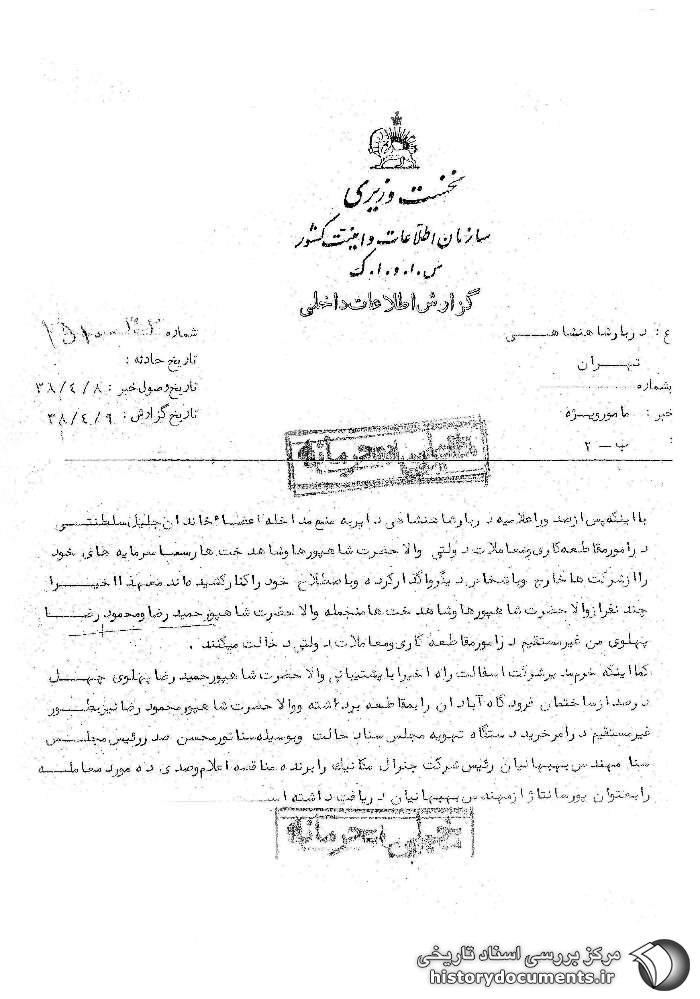 نخست وزیری
سازمان اطلاعات و امنیت کشور
س.ا.و.ا.ک
گزارش اطلاعات داخلی
ع: دربار شاهنشاهی
شماره
تهران
تاریخ حادثه :
بشماره
تاریخ وصول خبر : ۳۸/۴/۸
خبر : مامور ویژه
تاریخ گزارش : ۳۸/۴/۹
: ب – ۲
خیلی محرمانه
با اینکه پس از صدور اعلامیه دربار شاهنشاهی دایر به منع مداخله اعضاء خاندان جلیل سلطنتی
در امور مقاطعه کاری و معاملات دولتی والا حضرت شاهپورها و شاهدخت ها رسما سرمایه های خود
را از شرکت ها خارج وبا شخاص دیگر واگذار کرده و با صطلاح خود را کنار کشیده اند معهذا اخیرا
چند نفر از والا حضرت شاهپورها و شاهدخت ها منجمله والا حضرت شاهپور حمید رضا و محمود رضا
پهلوی من غیر مستقیم در امور مقاطعه کاری و معاملات دولتی دخالت میکنند .
کما اینکه خرم مدیر شرکت اسفالت راه اخیرا با پشتیبانی والا حضرت شاهپور حمید رضا پهلوی چهل
درصد از ساختمان فرودگاه آبادان را بمقاطعه برداشته و والا حضرت شاهپور محمود رضا نیز بطور
غیر مستقیم در امر خرید دستگاه تهویه مجلس سنا دخالت وبوسیله سناتور محسن صدر رئیس مجلس
سنا مهندس بهبهانیان رئیس شرکت جنرال مکانیک را برنده مناقصه اعلام وصدی ده مورد معامله
را بعنوان پورسانتاژ از مهندس بهبهانیان دریافت داشته است
خیلی محرمانه
مرکز بررسی اسناد تاریخی
historydocuments.ir